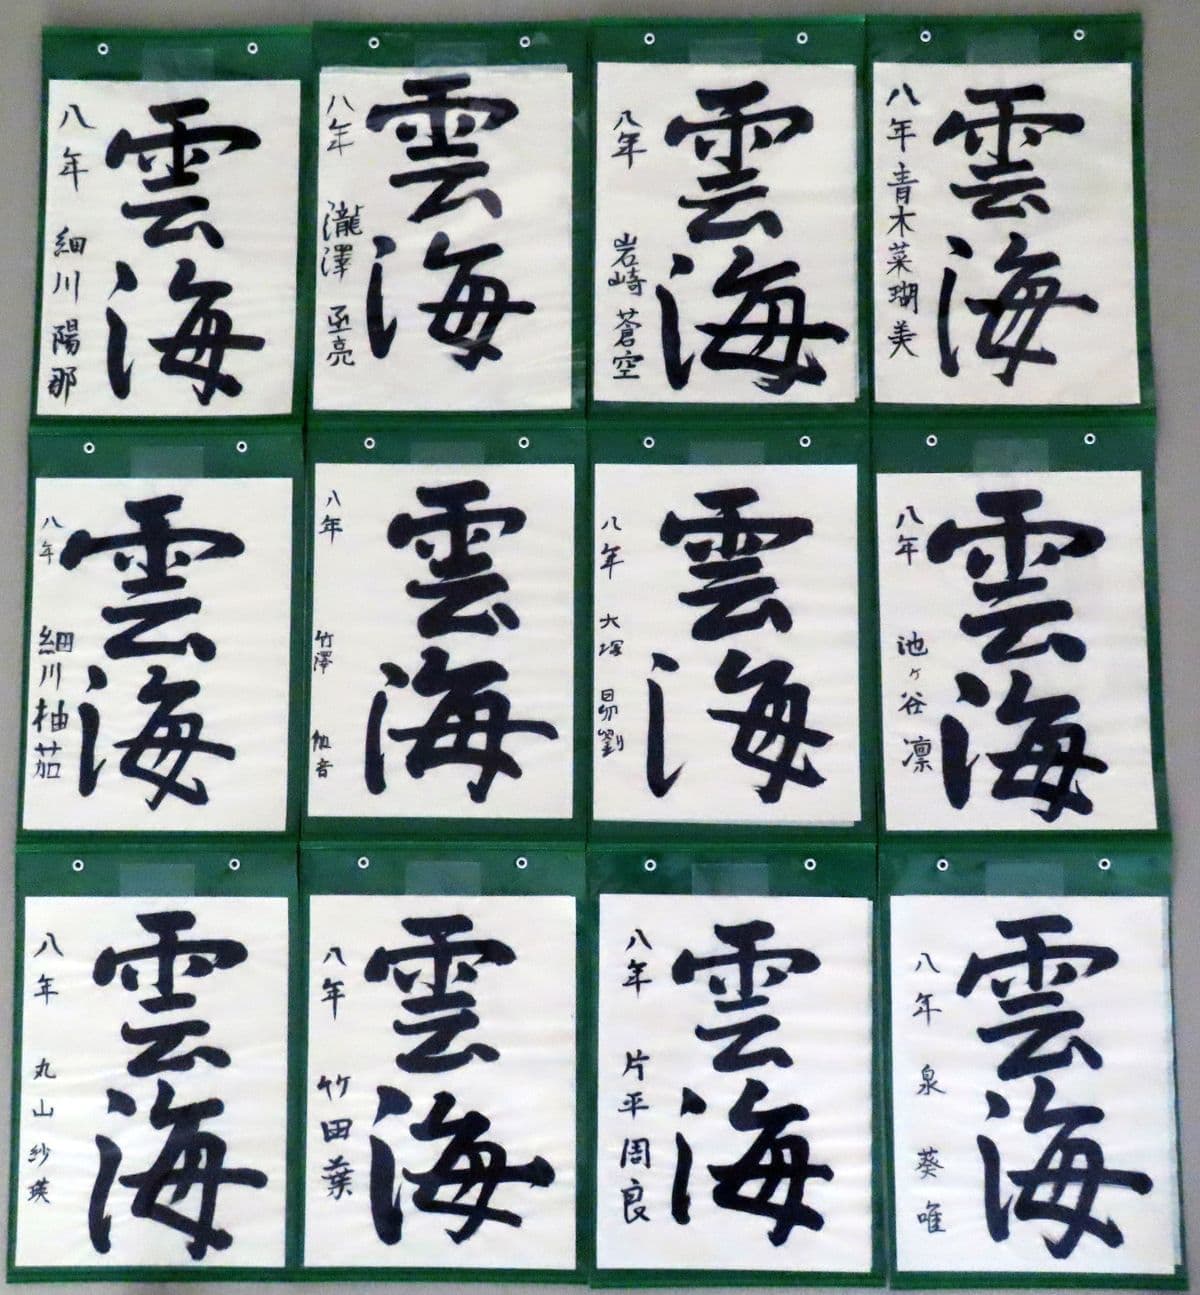 雲海
八年 青木菜瑚美
雲海
八年 岩崎 蒼空
雲海
八年 瀧澤 丞亮
雲海
八年 細川 陽那
雲海
八年 池ヶ谷 凛
雲海
八年 大塚
雲海
八年 竹澤
雲海
八年 細川柚茄
雲海
八年 泉 葵唯
雲海
八年 片平周良
雲海
八年 竹田葉
雲海
八年 丸山紗瑛